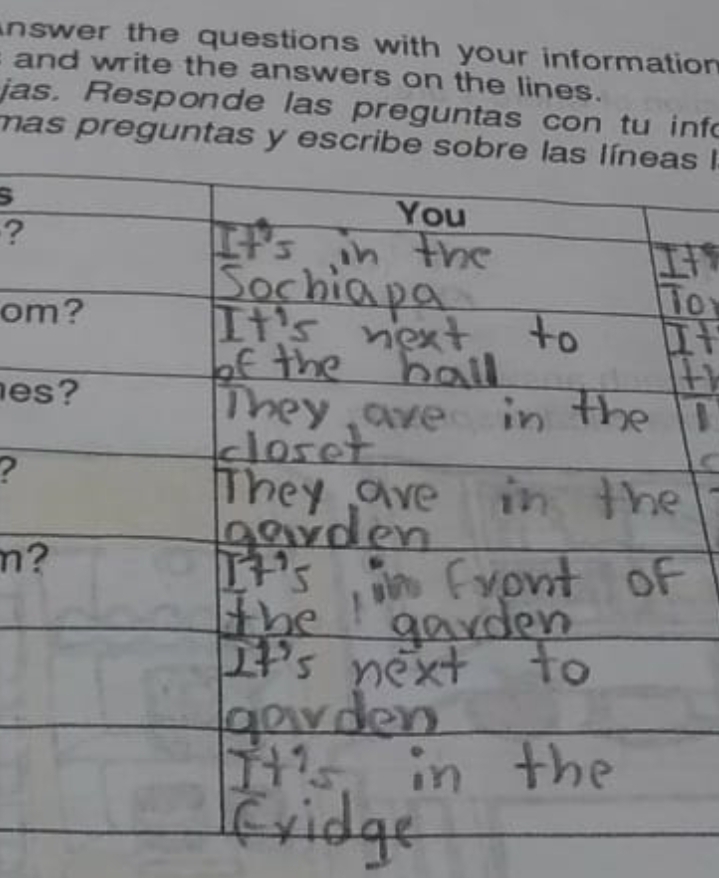 Answer the questions with your information
and write the answers on the lines.
jas. Responde las preguntas con tu info
mas preguntas y escribe sobre las líneas l
s You
? It's in the It's
Sochiapa To
om? It's next to It
of the hall th
nes? They are in the
closet
? They are in the
garden
m? It's in front of
the garden
It's next to
garden
It's in the
fridge